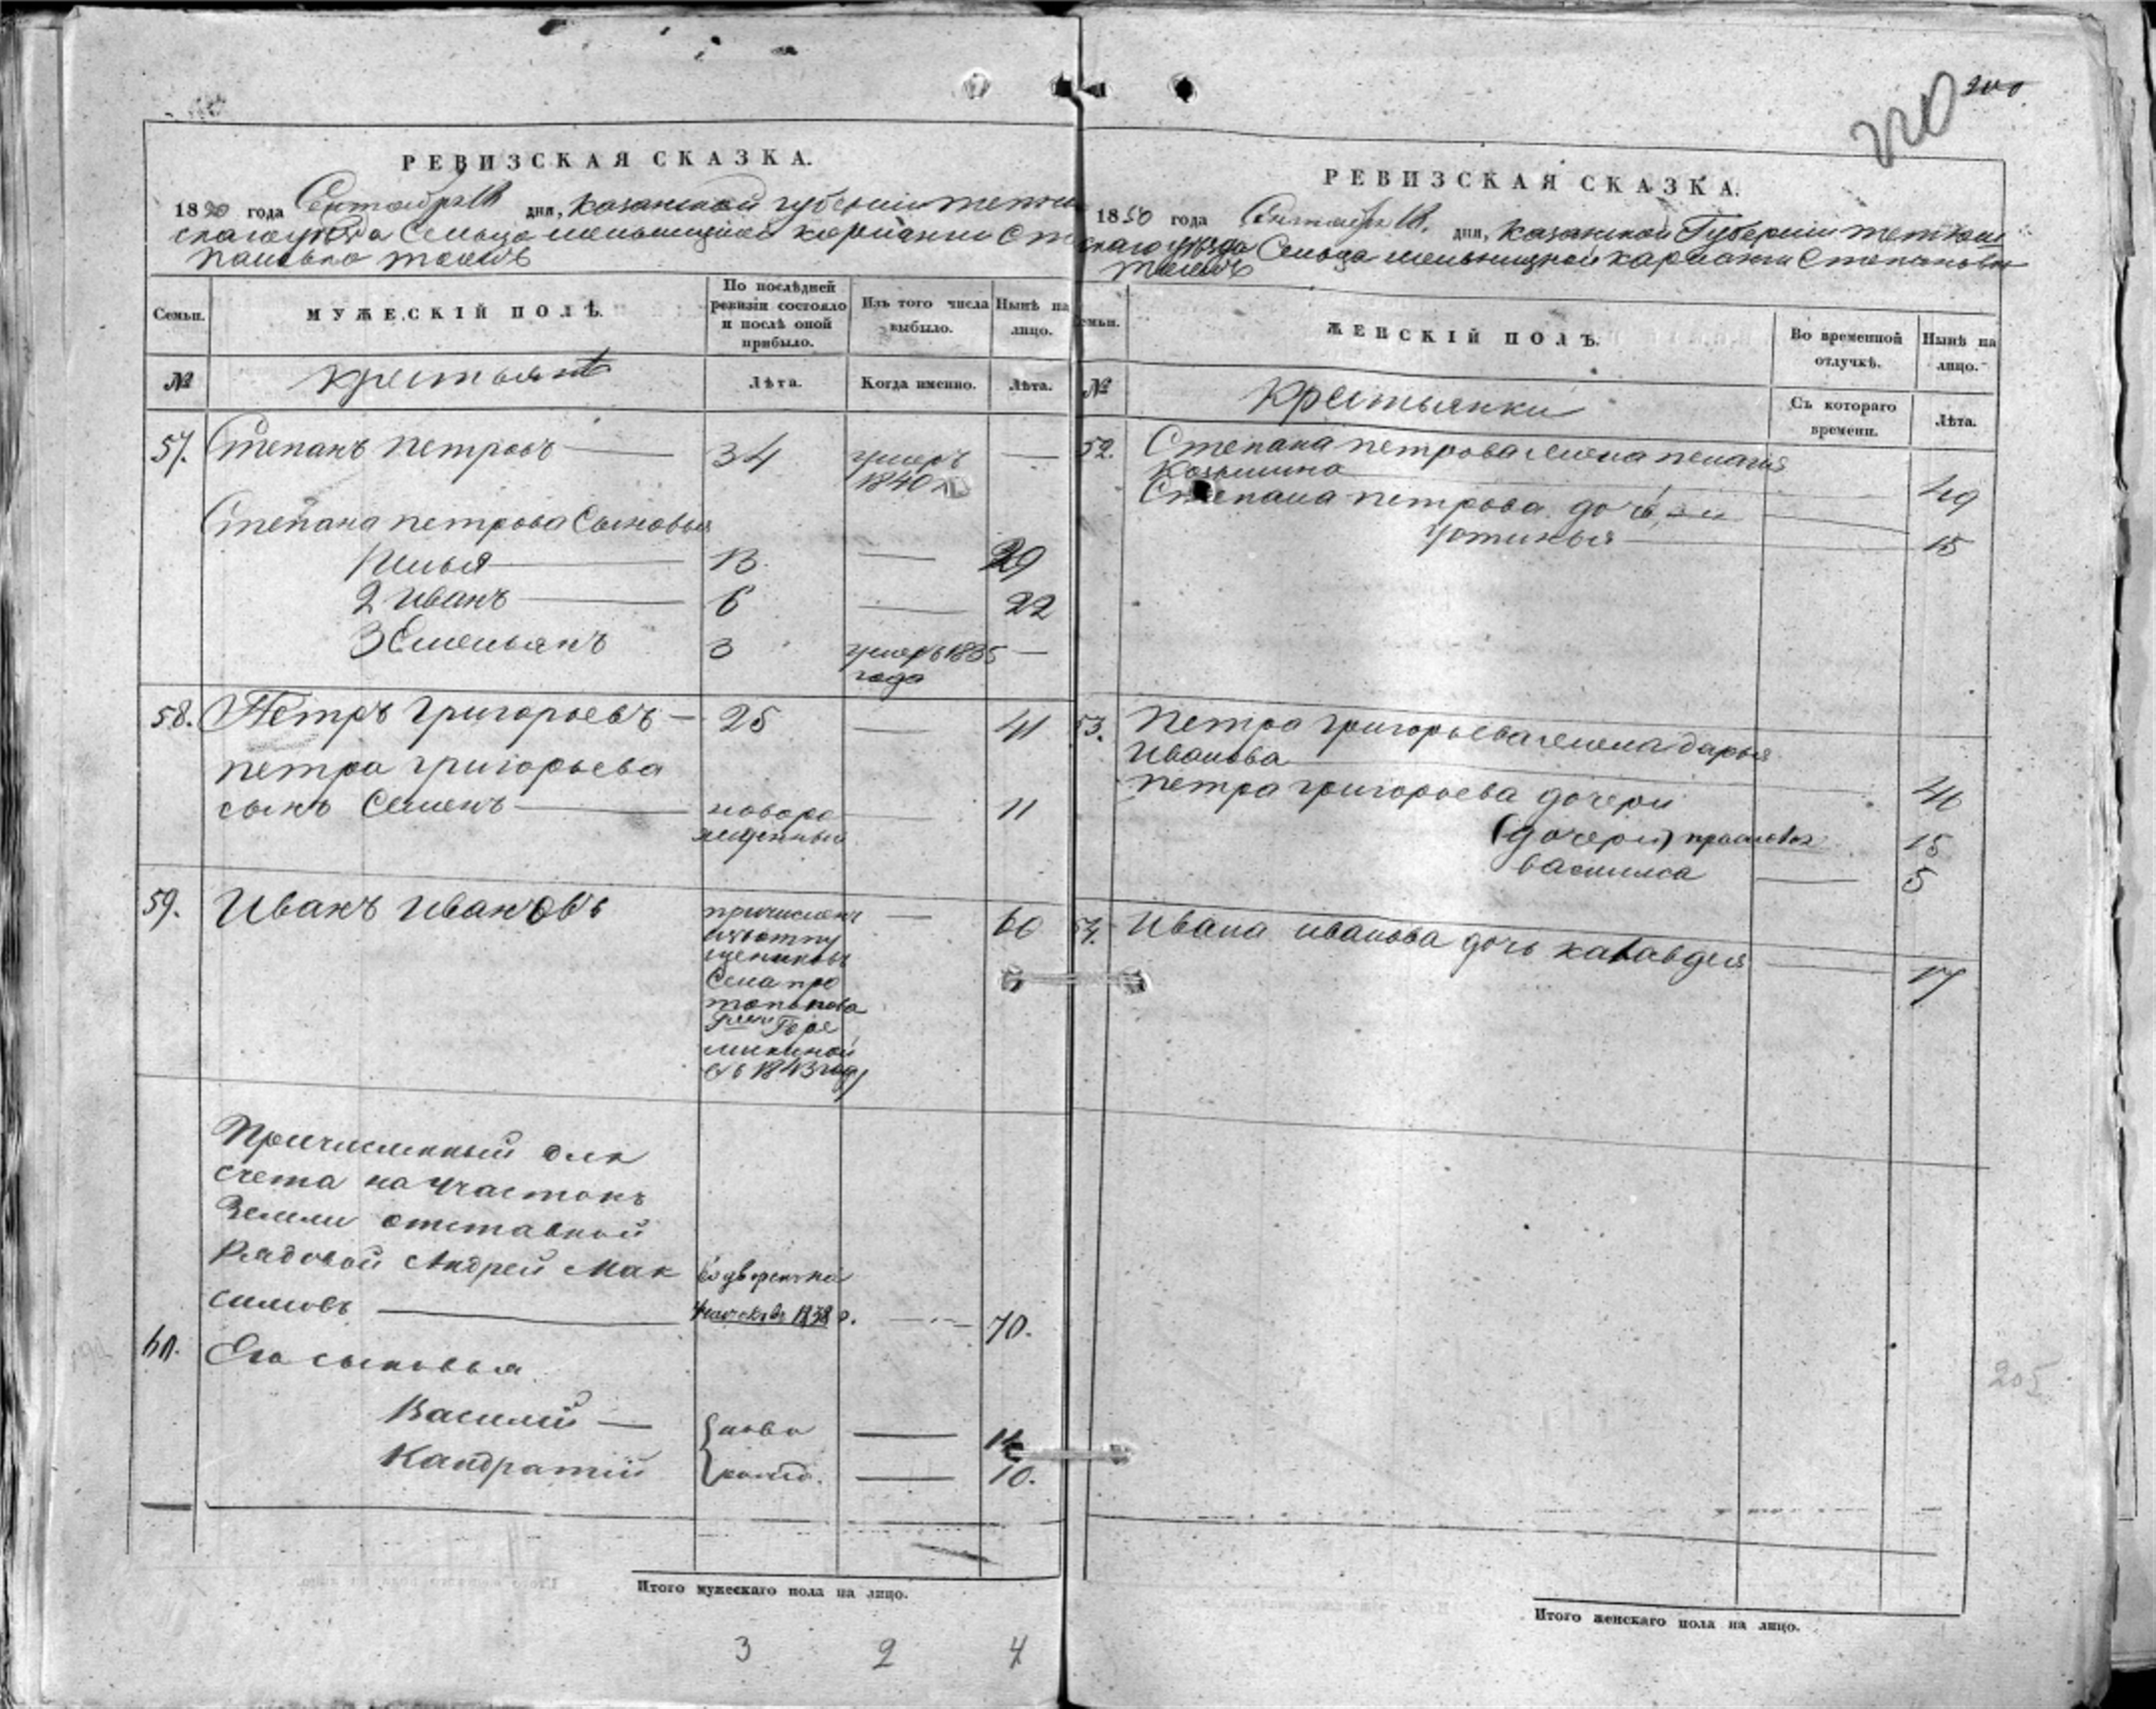 200
РЕВИЗСКАЯ СКАЗКА.
1850 года Сентября 18 дня, Казанской губернии тетюш
скаго уезда Сельца
тожъ
Семьи.
МУЖЕСКІЙ ПОЛЪ.
По послѣдней ревизіи состояло и послѣ оной прибыло.
Изъ того числа выбыло.
Нынѣ на лицо.
№
крестьянъ
Лѣта.
Когда именно.
Лѣта.
57. Степанъ петровъ 34 умеръ
1840
Степана петрова Сыновья
1 Илья 13 29
2 Иванъ 6 22
3 Емельянъ 3 умеръ 1835
года
58. Петръ Григорьевъ 25 41
петра григорьева
сынъ Семенъ новоро 11
жденный
59. Иванъ Ивановъ причисленъ 60
изъ отпу
щениковъ
Села про
топопова
Горе
мыкиной
съ 1843 году
Причисленный для
счета на участокъ
Земли отставной
Рядовой Андрей Мак
симовъ 1838 70.
60. Его сыновья
Василий ново 14
Кандратий рожд. 10.
Итого мужескаго пола на лицо.
3 2 4
РЕВИЗСКАЯ СКАЗКА.
1850 года Сентября 18. дня, Казанской Губернии тетюш
скаго уезда Сельца
тожъ
Семьи.
ЖЕНСКІЙ ПОЛЪ.
Во временной отлучкѣ.
Нынѣ на лицо.
№
Крестьянки
Съ котораго времени.
Лѣта.
52. Степана петрова жена пелагия
Козьмина 49
Степана петрова дочь
устинья 15
53. Петра григорьева жена дарья
Иванова 46
петра григорьева дочери
(дочери) прасковья 15
василиса 5
54. Ивана иванова дочь клавдея 17
205
Итого женскаго пола на лицо.